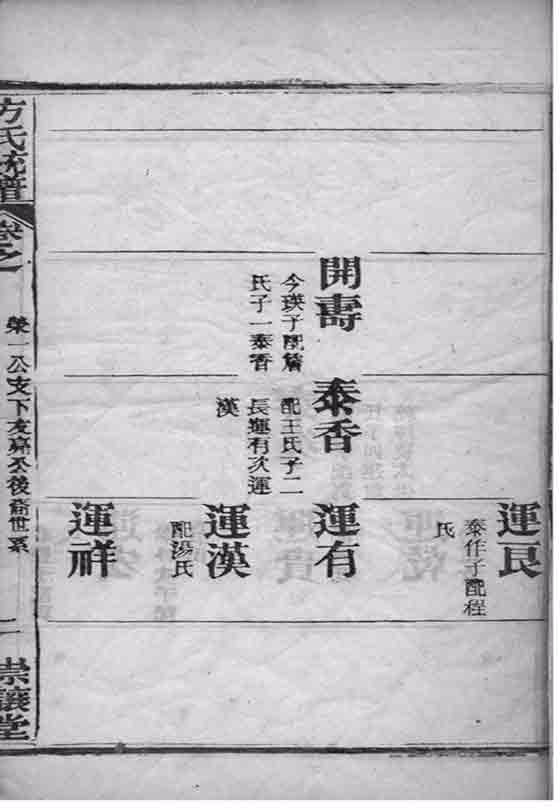 開壽
今瑛子配詹
氏子一泰香
泰香
配王氏子二
長運有次運
漢
運良
泰仟子配程
氏
運有
運漢
配湯氏
運祥
方氏統譜
卷之
榮一公支下友麻公後裔世系
二
崇讓堂